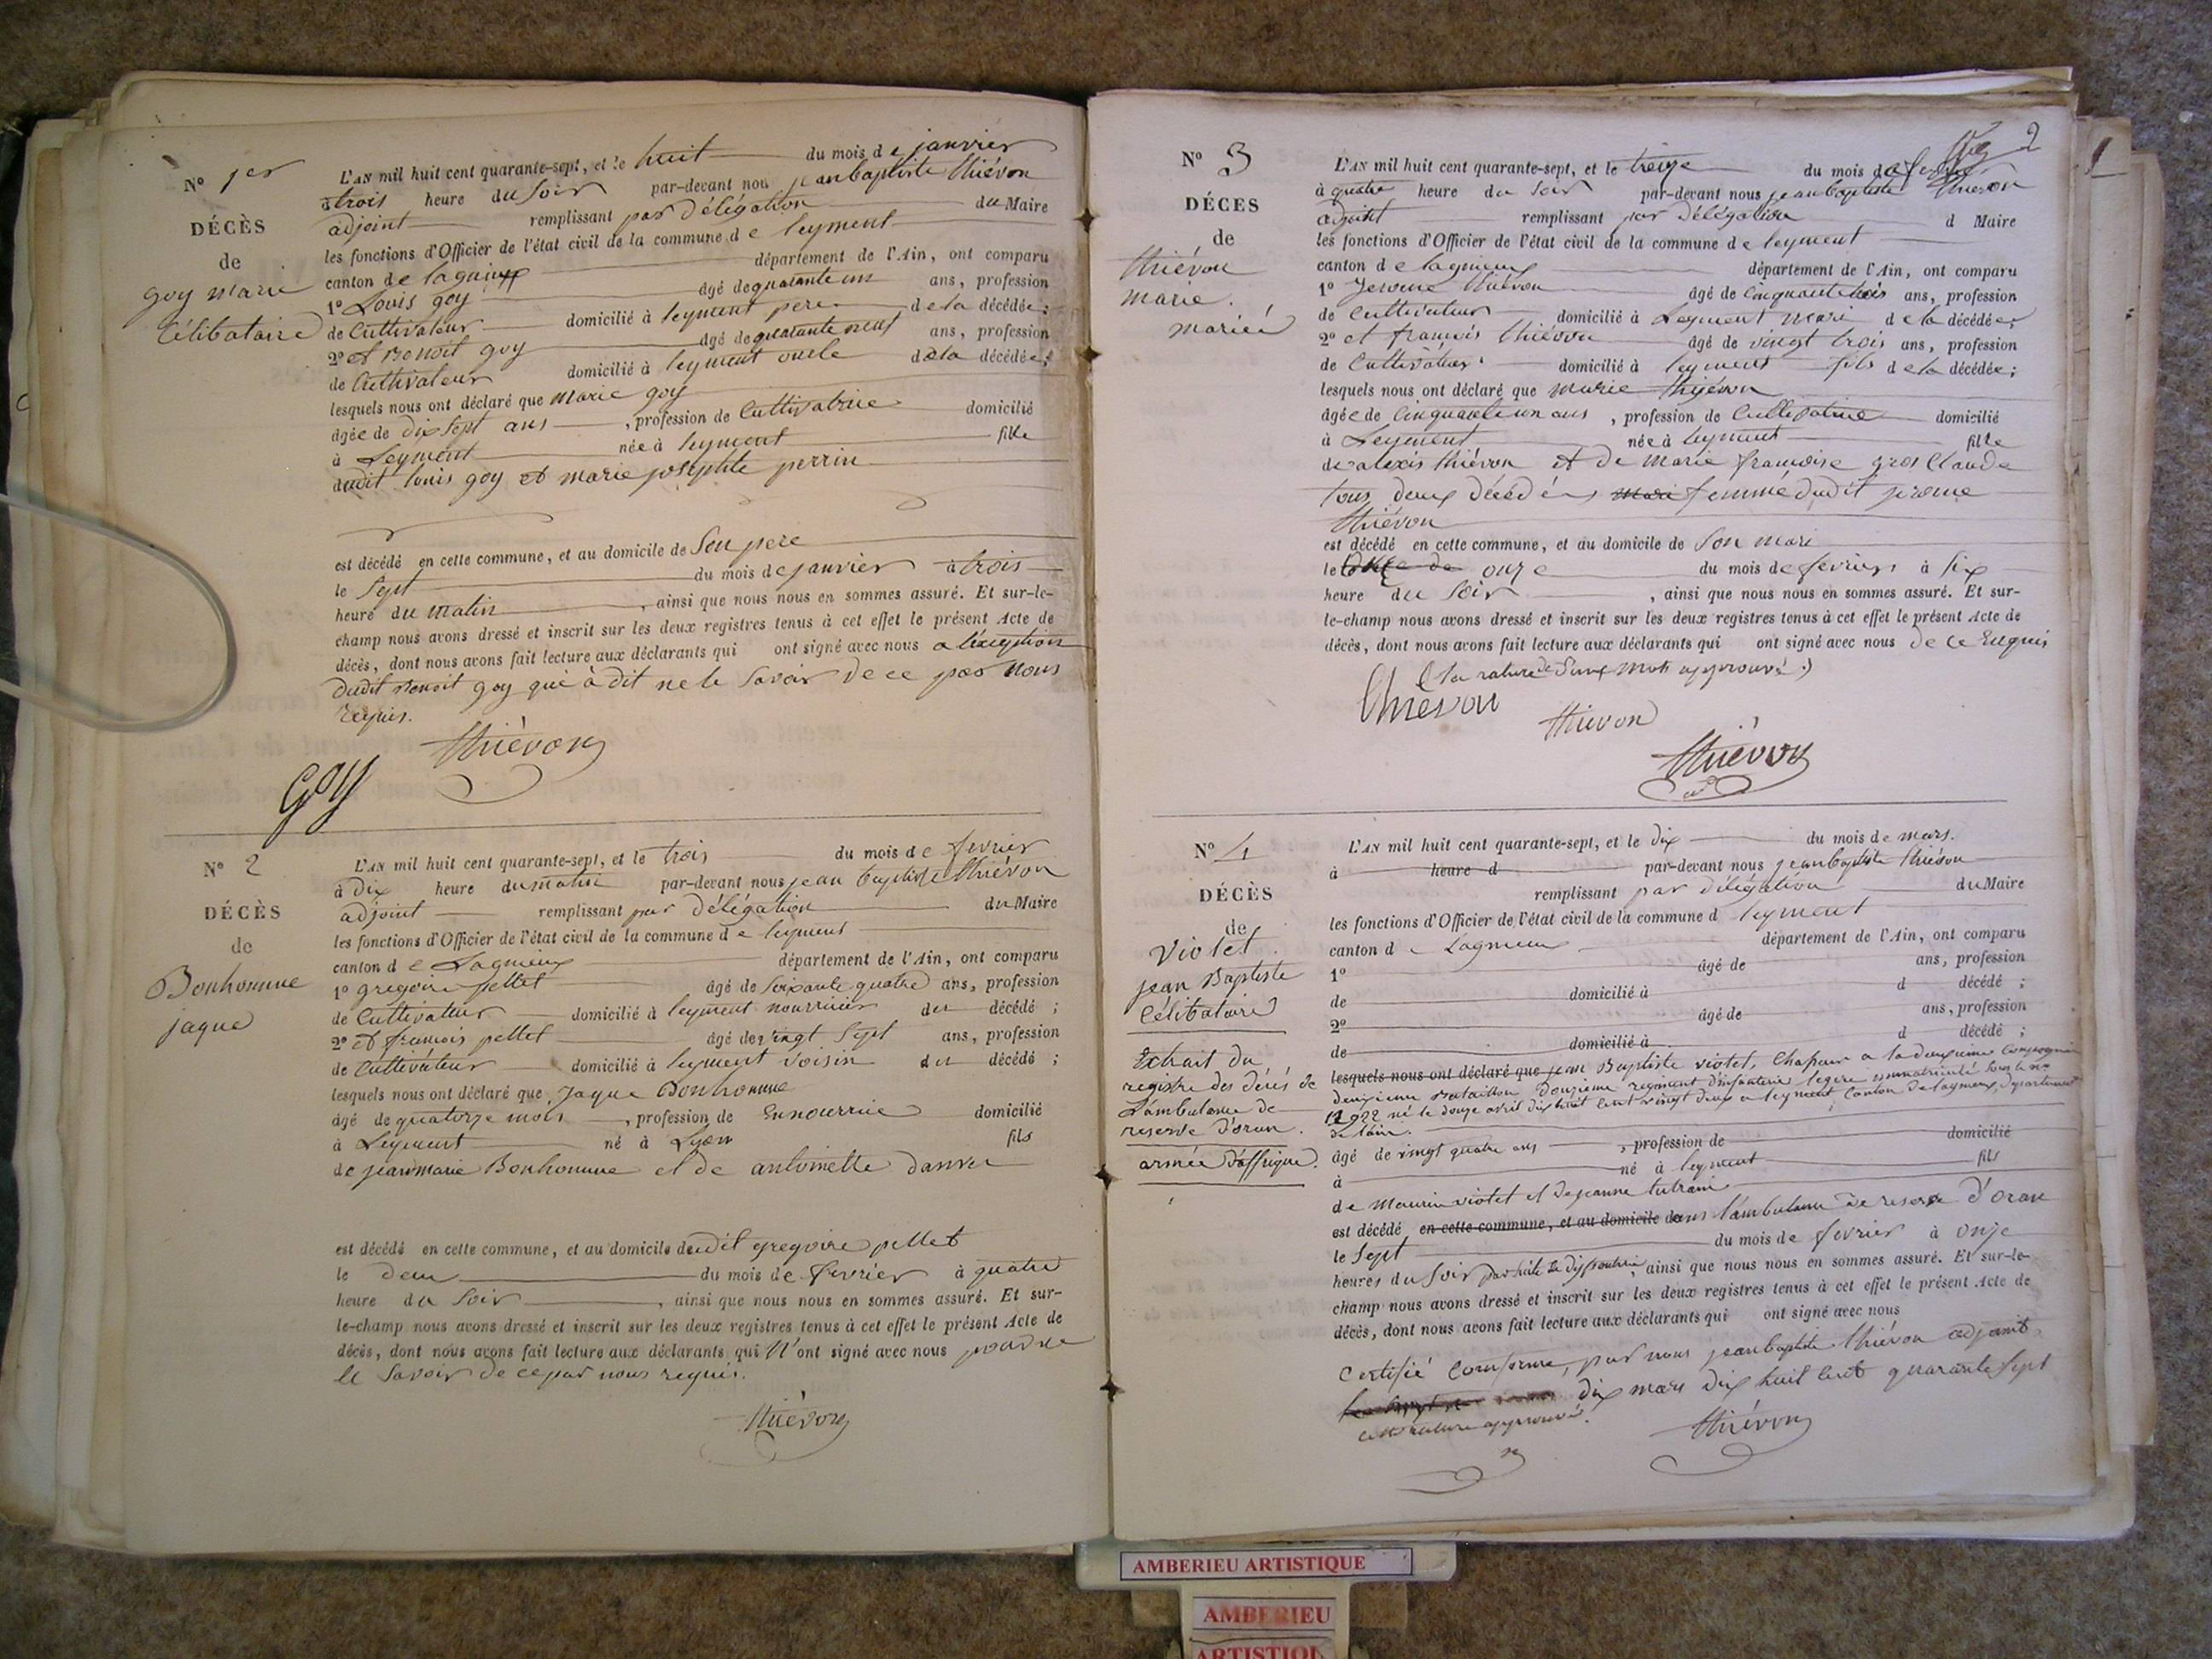 N° 1er
DÉCÈS
de
goy marie
célibataire
L'AN mil huit cent quarante-sept, et le huit du mois de janvier
à trois heure du soir par-devant nou jeanbaptiste thiévon
adjoint remplissant par délégation du Maire
les fonctions d'Officier de l'état civil de la commune de leyment
canton de lagnieux département de l'Ain, ont comparu
1° Louis goy âgé de quarante un ans, profession
de cultivateur domicilié à leyment pere de la décédée;
2° et Benoit goy âgé de quarante neuf ans, profession
de Cultivateur domicilié à leyment oncle de la décédée;
lesquels nous ont déclaré que marie goy
âgée de dix sept ans, profession de Cultivatrice domicilié
à Leyment née à leyment fille
dudit louis goy et marie josephte perrin
est décédé en cette commune, et au domicile de Son pere
le Sept du mois de janvier à trois
heure du matin, ainsi que nous nous en sommes assuré. Et sur-le-
champ nous avons dressé et inscrit sur les deux registres tenus à cet effet le présent Acte de
décès, dont nous avons fait lecture aux déclarants qui ont signé avec nous a l'exception
dudit Benoit goy qui à dit ne le Savoir de ce par nous
requis.
thiévon
Goy
N° 2
DÉCÈS
de
Bonhomme
jaque
L'AN mil huit cent quarante-sept, et le trois du mois de fevrier
à dix heure du matin par-devant nous jean baptiste thiévon
adjoint remplissant par délégation du Maire
les fonctions d'Officier de l'état civil de la commune de leyment
canton de Lagnieux département de l'Ain, ont comparu
1° gregoire pellet âgé de Soixante quatre ans, profession
de Cultivateur domicilié à leyment nourricier du décédé;
2° et françois pellet âgé de vingt Sept ans, profession
de Cultivateur domicilié à leyment voisin du décédé;
lesquels nous ont déclaré que Jaque Bonhomme
âgé de quatorze mois, profession de En nourrice domicilié
à Leyment né à Lyon fils
de jeanmarie Bonhomme et de antoinette danver
est décédé en cette commune, et au domicile dudit gregoire pellet
le deux du mois de fevrier à quatre
heure du Soir, ainsi que nous nous en sommes assuré. Et sur-
le-champ nous avons dressé et inscrit sur les deux registres tenus à cet effet le présent Acte de
décès, dont nous avons fait lecture aux déclarants qui N'ont signé avec nous pour ne
le Savoir de ce par nous requis.
thiévon
2
N° 3
DÉCES
de
thiévon
marie.
mariée
L'AN mil huit cent quarante-sept, et le treize du mois de fevrier
à quatre heure du soir par-devant nous jeanbaptiste thiévon
adjoint remplissant par délégation d Maire
les fonctions d'Officier de l'état civil de la commune de leyment
canton de lagnieux département de l'Ain, ont comparu
1° Jerome thiévon âgé de Cinquante trois ans, profession
de Cultivateur domicilié à Leyment mari de la décédée;
2° et françois thiévon âgé de vingt trois ans, profession
de Cultivateur domicilié à leyment fils de la décédée;
lesquels nous ont déclaré que marie thiévon
âgée de Cinquante un ans, profession de Cultivatrice domicilié
à Leyment née à leyment fille
de alexis thiévon et de marie françoise gros Claude
tous deux décédés mari femme dudit jerome
thiévon
est décédé en cette commune, et au domicile de Son mari
le onze du mois de fevrier à Six
heure du Soir, ainsi que nous nous en sommes assuré. Et sur-
le-champ nous avons dressé et inscrit sur les deux registres tenus à cet effet le présent Acte de
décès, dont nous avons fait lecture aux déclarants qui ont signé avec nous de ce Requis
(la rature de deux mots approuvé.)
thievon
thievon
thiévon
N° 4
DÉCÈS
de
Violet
jean Baptiste
Célibataire
Extrait du
registre des décès de
L'ambulance de
reserve d'oran.
armée d'affrique.
L'AN mil huit cent quarante-sept, et le dix du mois de mars.
à heure d par-devant nous jeanbaptiste thiévon
remplissant par délégation du Maire
les fonctions d'Officier de l'état civil de la commune d leyment
canton de Lagnieux département de l'Ain, ont comparu
1° âgé de ans, profession
de domicilié à d décédé;
2° âgé de ans, profession
de domicilié à d décédé;
lesquels nous ont déclaré que jean Baptiste violet, Chasseur a la deuxieme Compagnie
deuxieme Bataillon douzieme regiment d'infanterie legere immatriculé Sous le n°
né le douze avril dix huit cent vingt deux a leyment, Canton de lagnieux, departement
de l'ain.
âgé de vingt quatre ans, profession de domicilié
à né à leyment fils
de Maurin violet et de jeanne
est décédé en cette commune, et au domicile dans l'ambulance de reserve d'oran
le Sept du mois de fevrier à onze
heures du Soir par suite de dyssentrie, ainsi que nous nous en sommes assuré. Et sur-le-
champ nous avons dressé et inscrit sur les deux registres tenus à cet effet le présent Acte de
décès, dont nous avons fait lecture aux déclarants qui ont signé avec nous
Certifié Conforme, par nous jeanbaptiste thiévon adjoint
dix mars dix huit cent quarante Sept
rature approuvé.
thiévon
1
AMBERIEU ARTISTIQUE
AMBERIEU
ARTISTIQU